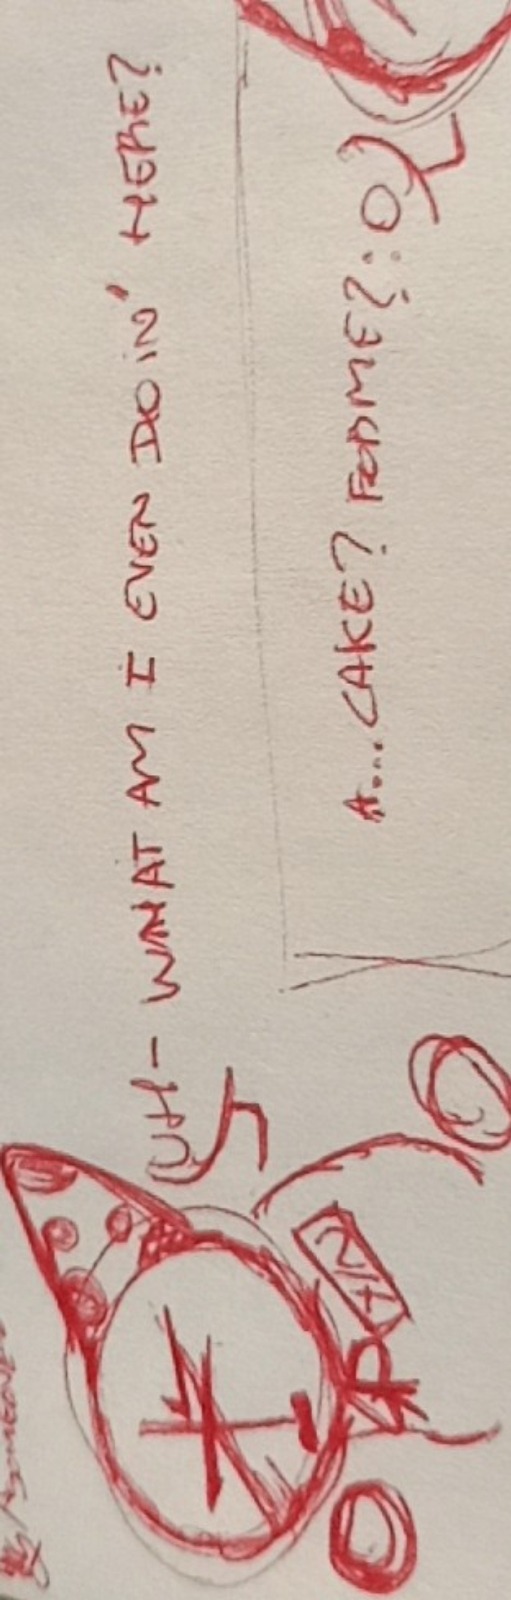 UH- WHAT AM I EVEN DOIN' HERE?
A... CAKE? FOR ME? :O